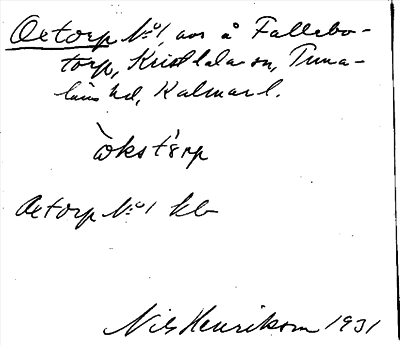 Oxtorp No 1, avs å Fallebo-
torp, Kristdala sn, Tuna-
läns hd, Kalmar l.
òkstörp
Oxtorp No 1 kb
Nils Henrikson 1931